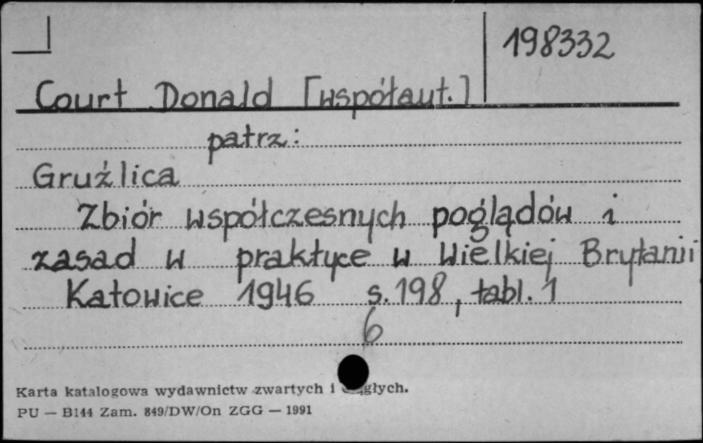 198332
Court Donald [współaut.]
patrz:
Gruźlica
Zbiór współczesnych poglądów i
zasad w praktyce w Wielkiej Brytanii
Katowice 1946 s. 198, tabl. 1
6
Karta katalogowa wydawnictw zwartych i głych.
PU — B144 Zam. 849/DW/On ZGG — 1991